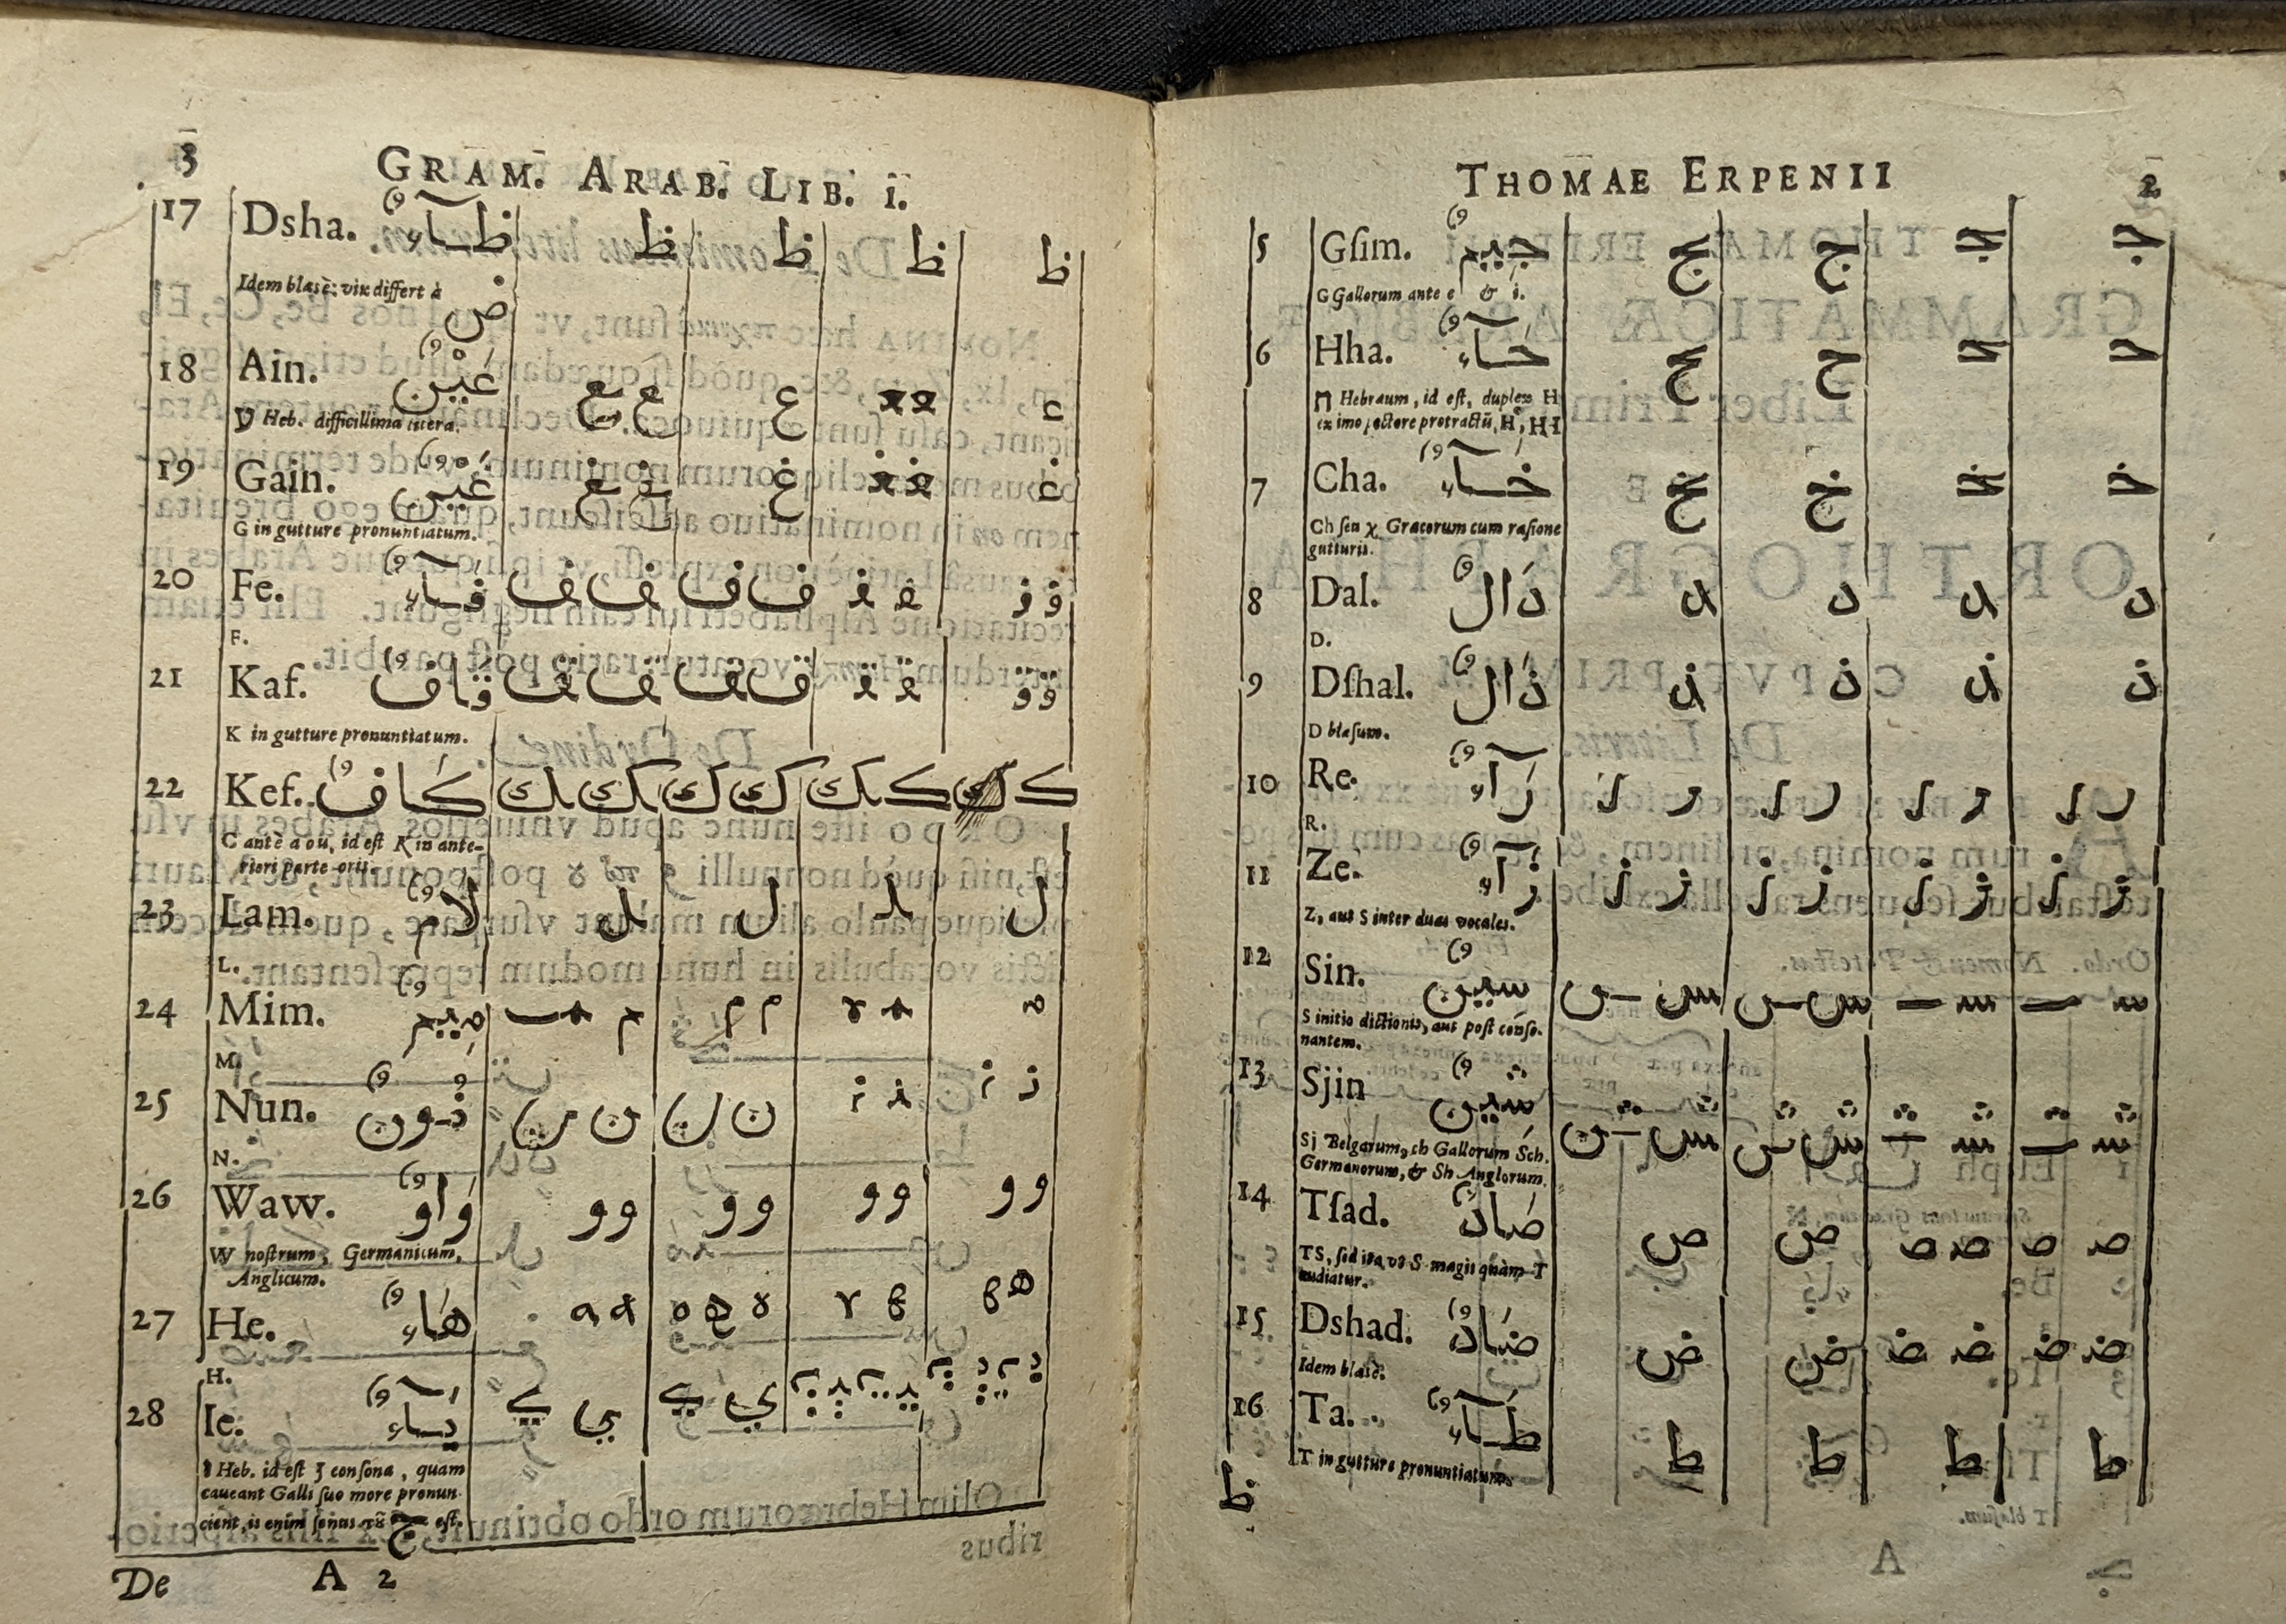 THOMAE ERPENII 2
5 Gſim. جِيمٌ ج ج ج ج
G Gallorum ante e & i.
6 Hha. حَآءٌ ح ح ح ح
ח Hebræum, id eſt, duplex H
ex imo pectore protractū, H, HH
7 Cha. خَآءٌ خ خ خ خ
Ch ſeu χ Græcorum cum raſione
gutturis.
8 Dal. دَالٌ د د د د
D.
9 Dſhal. ذَالٌ ذ ذ ذ ذ
D blæſum.
10 Re. رَآءٌ ر ر ر ر ر ر ر ر
R.
11 Ze. زَآءٌ ز ز ز ز ز ز ز ز
Z, aut S inter duas vocales.
12 Sin. سِينٌ س س س س س س س س
S initio dictionis, aut poſt conſo-
nantem.
13 Sjin شِينٌ ش ش ش ش ش ش ش ش
Sj Belgarum, ch Gallorum Sch.
Germanorum, & Sh Anglorum.
14 Tſad. صَادٌ ص ص ص ص ص ص
TS, ſed ita vt S magis quàm T
audiatur.
15 Dshad. ضَادٌ ض ض ض ض ض ض
Idem blæsè.
16 Ta. طَآءٌ ط ط ط ط
T in gutture pronuntiatum.
ظ
3 GRAM. ARAB. LIB. i.
17 Dsha. ظَآءٌ ظ ظ ظ ظ
Idem blæsè: vix differt à
ض
18 Ain. عَيْنٌ ع ع ع ع ع ع
ע Heb. difficillima litera.
19 Gain. غَيْنٌ غ غ غ غ غ غ
G in gutture pronuntiatum.
20 Fe. فَآءٌ ف ف ف ف ف ف ف ف
F.
21 Kaf. قَافٌ ق ق ق ق ق ق ق ق
K in gutture pronuntiatum.
22 Kef. كَافٌ ك ك ك ك ك ك ك
C antè a o u, id eſt K in ante-
riori parte oris.
23 Lam. لَامٌ ل ل ل ل
L.
24 Mim. مِيمٌ م م م م م م م
M.
25 Nun. نُونٌ ن ن ن ن ن ن ن ن
N.
26 Waw. وَاوٌ و و و و و و و و
W nostrum, Germanicum,
Anglicum.
27 He. هَاءٌ ه ه ه ه ه ه ه ه ه
H.
28 Ie. يَآءٌ ي ي ي ي
Heb. id eſt J conſona, quam
caueant Galli ſuo more pronun-
cient, is enim ſonus τȣ ج eſt.
De A 2